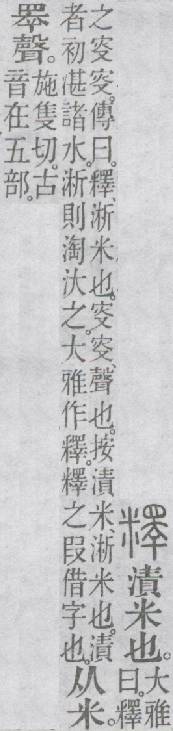 𥼶漬米也。
大雅
曰。釋
之叜叜。傳曰。釋、淅米也。叜叜、聲也。按漬米、淅米也。漬
者初湛諸水。淅則淘汏之。大雅作釋。釋、𥼶之叚借字也。
从米。
睪聲。
施隻切。古
音在五部。